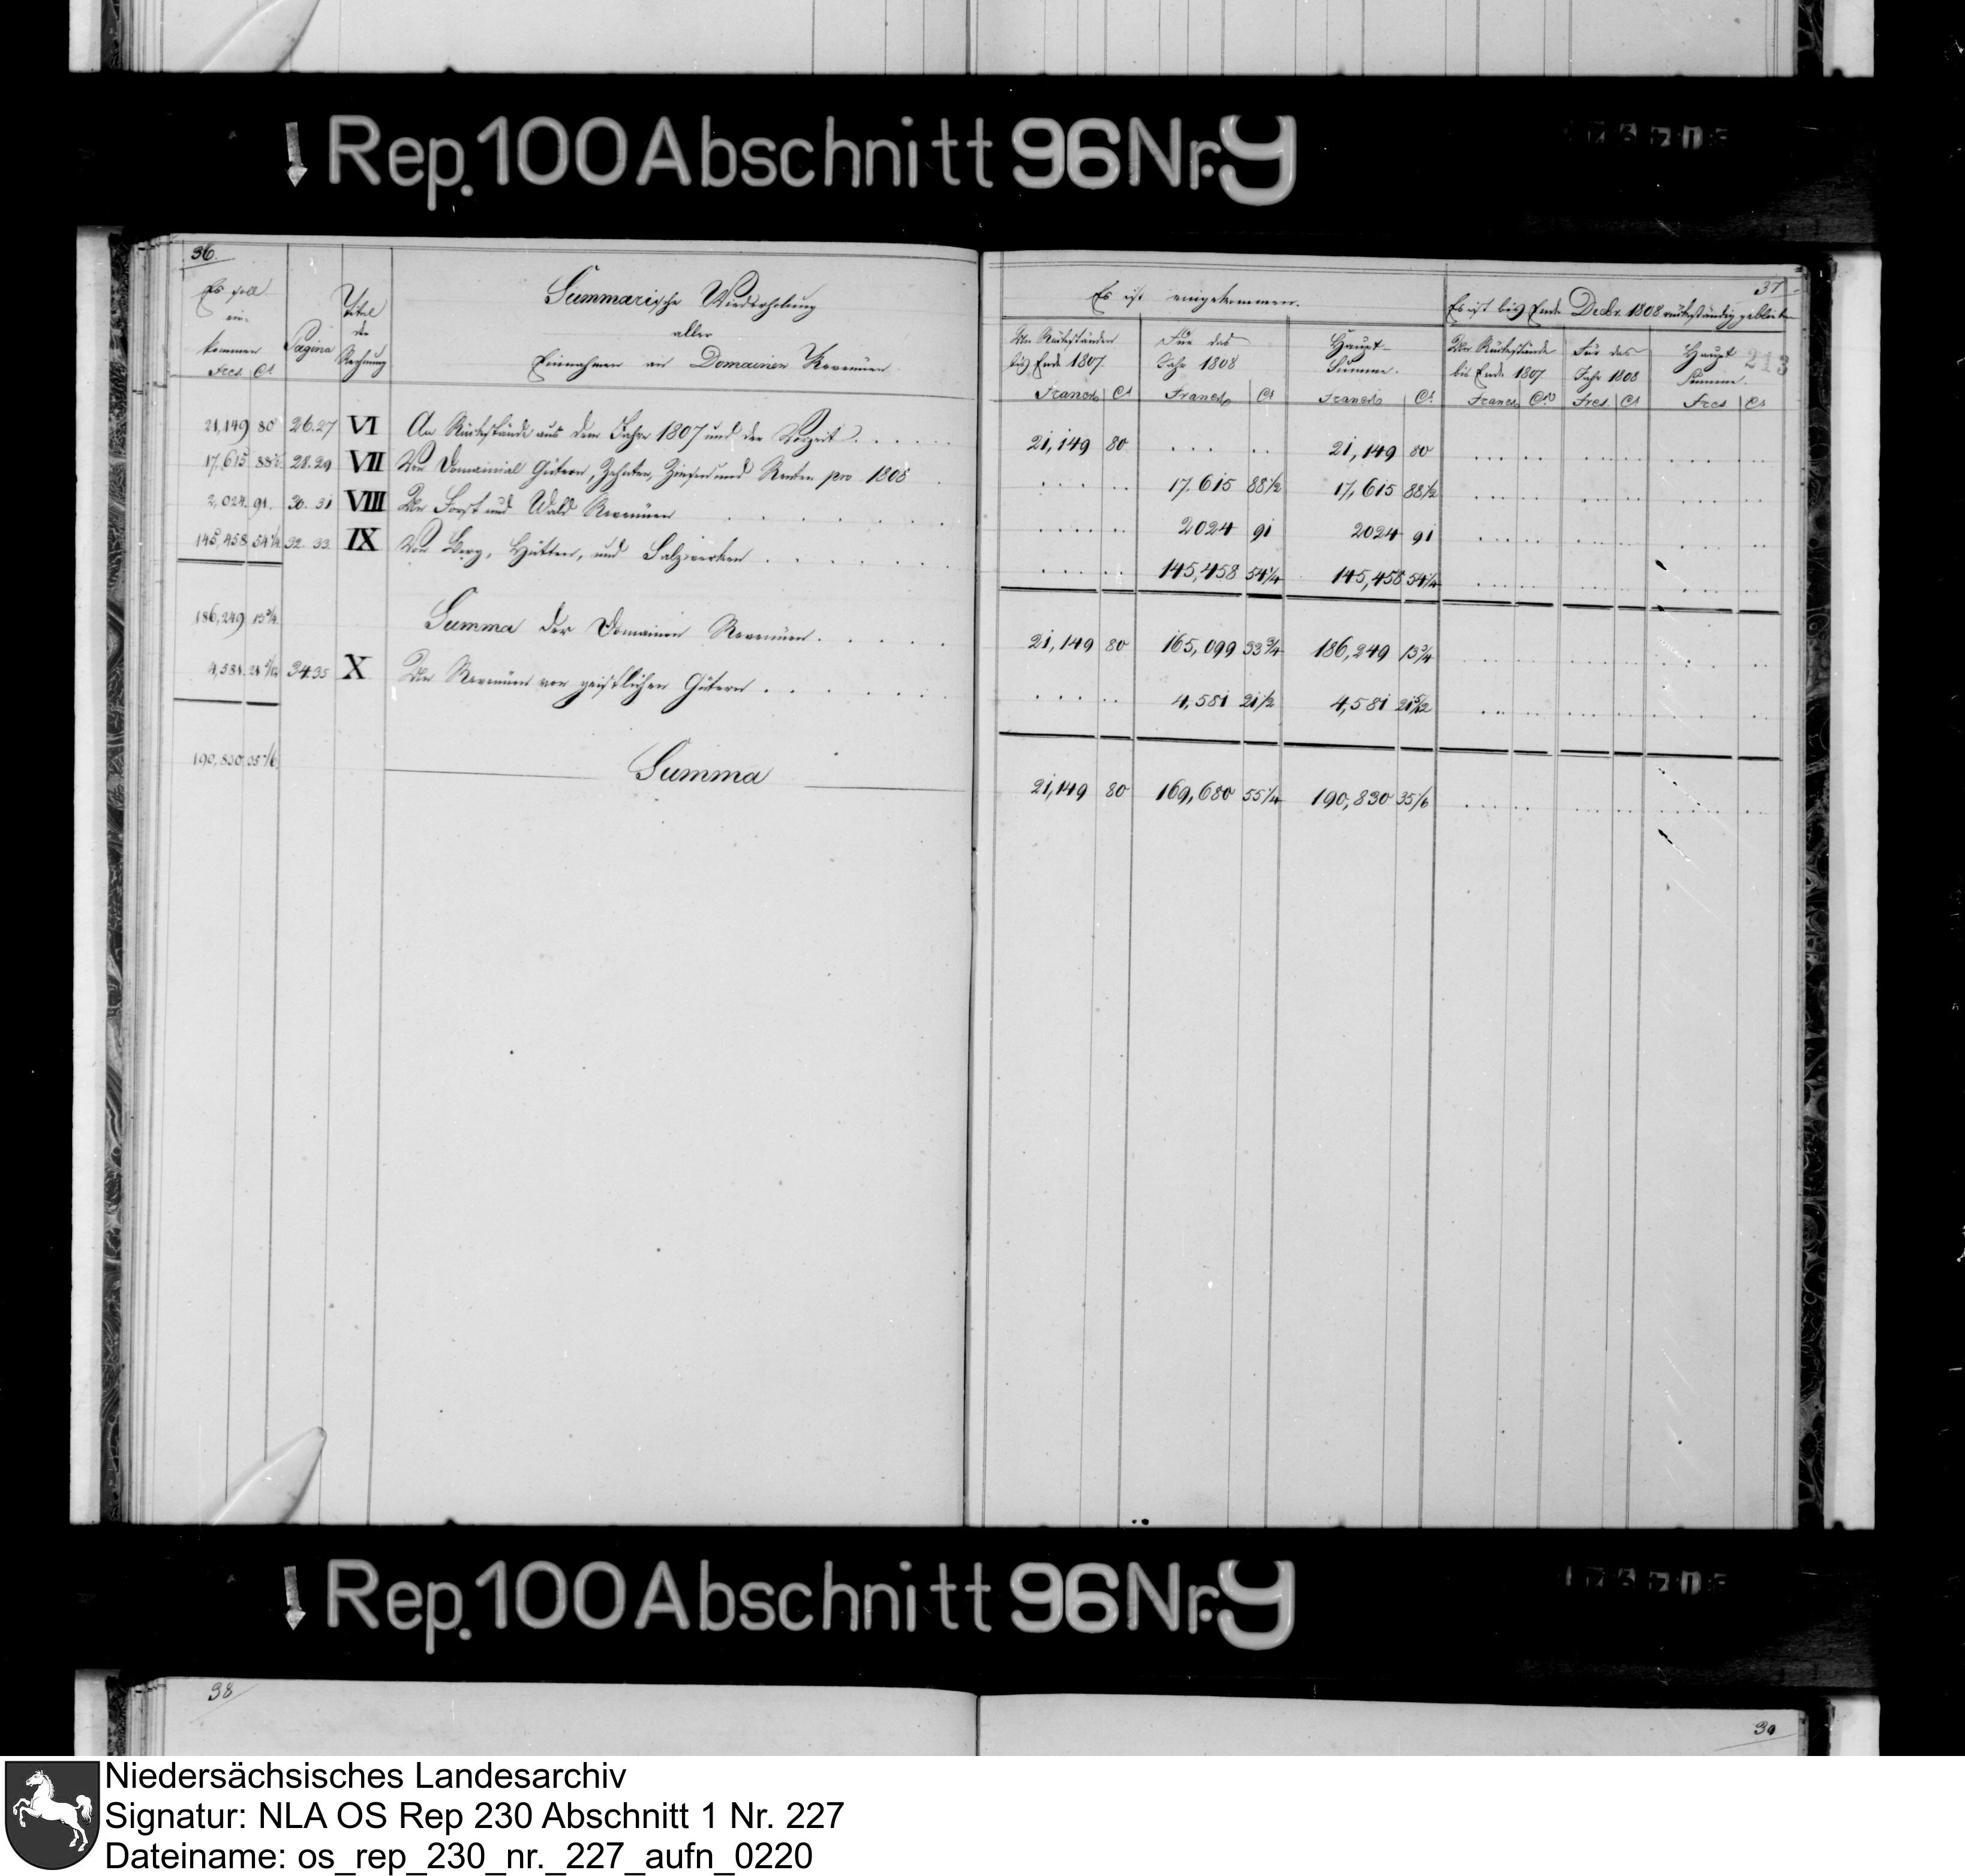 Rep. 100 Abschnitt 96 Nr. 9
36.
37
213
Es soll
ein-
kommen
Frcs. Cs
Pagina
Titel
der
Rechnung
Summarische Wiederholung
aller
Einnahmen an Domainen Revenüen
Es ist eingekommen.
Es ist bis Ende Decbr. 1808 rückständig geblieben
Von Rückständen bis Ende 1807.
Francs Cs
Für das Jahr 1808
Francs Cs
Haupt-Summe.
Francs Cs
Von Rückstände bis Ende 1807
Francs Cs
Für das Jahr 1808
Frcs. Cs
Haupt Summe.
Frcs Cs
21,149 80 26.27 VI An Rückstände aus dem Jahre 1807 und der Vorzeit . . . . . 21,149 80 . . . . . 21,149 80
17,615 88½ 28.29 VII Von Domainial Gütern, Zehnten, Zinsen und Renten pro 1808 . . . . . . 17,615 88½ 17,615 88½
2,024. 91. 30. 31 VIII Von Forst und Wald Revenüen . . . . . . 2024 91 2024 91
145,458 54¼ 32. 33. IX Von Berg, Hütten, und Salzwerken . . . . . . 145,458 54¼ 145,458 54¼
186,249 13¾ Summa der Domainen Revenüen . . . . . 21,149 80 165,099 33¾ 186,249 13¾
4,581. 21 5/12 34.35 X Von Revenüen von geistlichen Gütern . . . . . . 4,581 21½ 4,581 21 5/12
190,830 35 1/6 Summa 21,149 80 169,680 55¼ 190,830 35 1/6
Rep. 100 Abschnitt 96 Nr. 9
38
39
Niedersächsisches Landesarchiv
Signatur: NLA OS Rep 230 Abschnitt 1 Nr. 227
Dateiname: os_rep_230_nr._227_aufn_0220